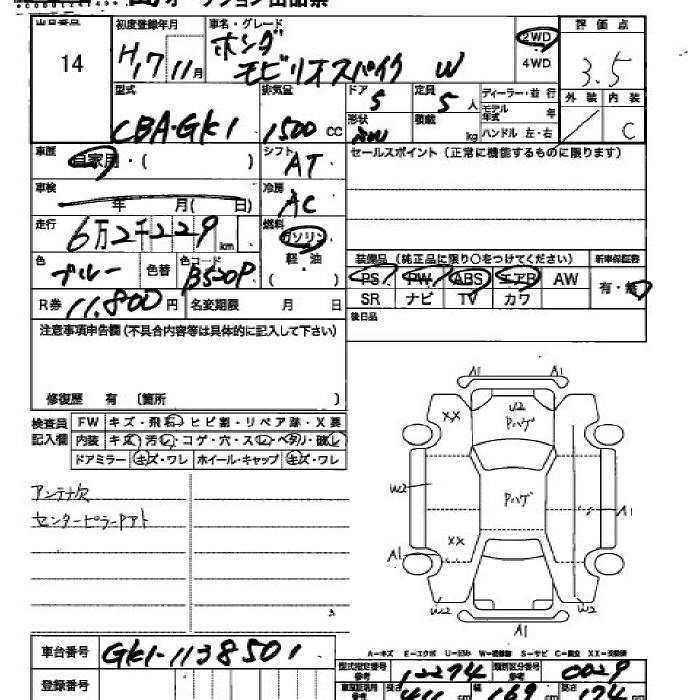 出品番号
14
初度登録年月
H17 11月
車名・グレード
ホンダ
モビリオスパイク W
2WD
4WD
評価点
3.5
外装 内装
C
型式
CBA-GK1
排気量
1500 cc
ドア
5
定員
5 人
形状
積載 kg
ディーラー・並行
モデル年式 年
ハンドル 左・右
車歴
自家用・( )
シフト
AT
セールスポイント (正常に機能するものに限ります)
車検
年 月( 日)
冷房
AC
走行
6万2千229 km
燃料
ガソリン
軽・油
色
ブルー
色替
色コード
B520P
装備品 (純正品に限り○をつけてください)
新車保証書
PS PW ABS エアB AW
SR ナビ TV カワ
有・無
R券 11.800円
名変期限 月 日
後日品
注意事項申告欄(不具合内容等は具体的に記入して下さい)
修復歴 有 〔箇所 〕
検査員
記入欄
FW キズ・飛石・ヒビ割・リペア跡・X要
内装 キズ・汚レ・コゲ・穴・スレ・ヘタリ・破レ
ドアミラー キズ・ワレ ホイール・キャップ キズ・ワレ
アンテナ欠
センターピラーPアト
A1 A1
XX
U2
Pハゲ
W2
Pハゲ
A1
XX
A1
W2 W2
A1
A－キズ E－エクボ U－凹み W－補修跡 S－サビ C－腐食 XX－交換済
車台番号
GK1-1138501
登録番号
型式指定番号
参考
12274
類別区分番号
参考
0029
長さ
幅
169
高さ
174